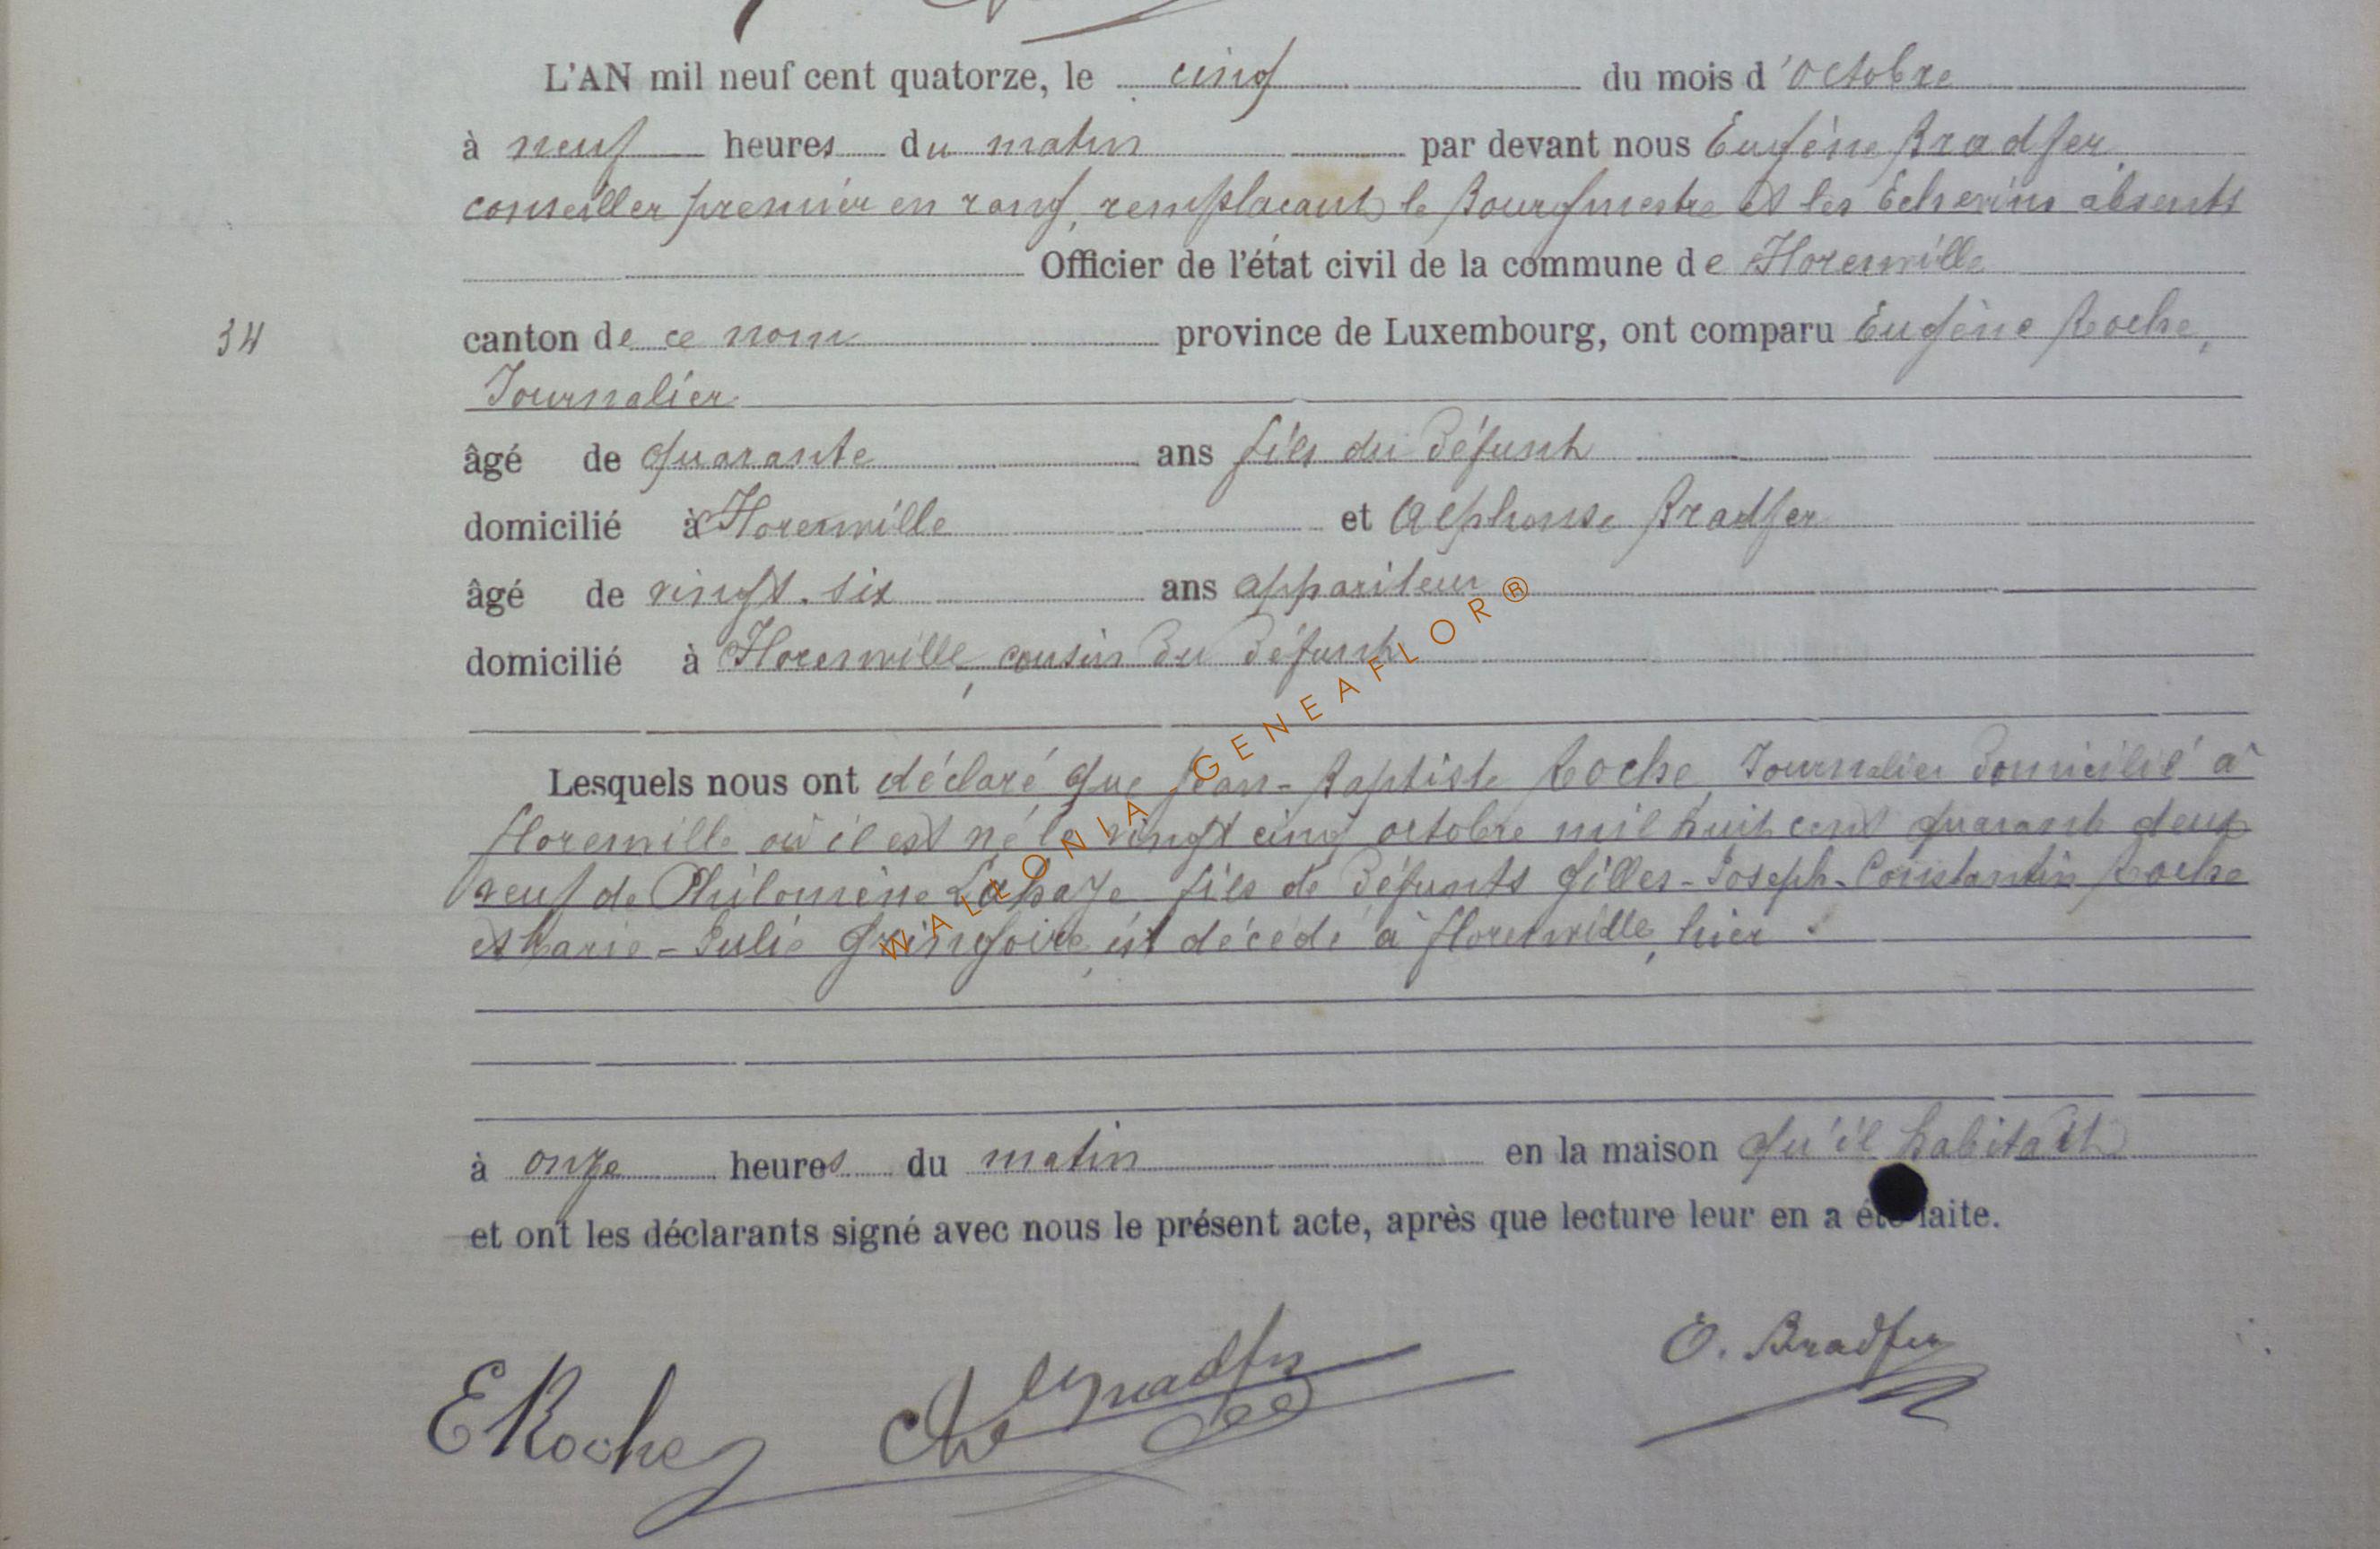 L'AN mil neuf cent quatorze, le cinq du mois d'octobre
à neuf heures du matin par devant nous Eugène Bradfer,
conseiller premier en rang, remplaçant le Bourgmestre et les Echevins absents
Officier de l'état civil de la commune de Florenville
34
canton de ce nom province de Luxembourg, ont comparu Eugène Roche,
Journalier
âgé de quarante ans fils du défunt
domicilié à Florenville et Alphonse Bradfer
âgé de vingt-six ans appariteur
domicilié à Florenville, cousin du défunt
Lesquels nous ont déclaré que Jean-Baptiste Roche, Journalier domicilié à
Florenville où il est né le vingt cinq octobre mil huit cent quarante deux
veuf de Philomène Lahaye fils de défunts Gilles-Joseph-Constantin Roche
et Marie-Julie Gringoire, est décédé à Florenville, hier
à onze heures du matin en la maison qu'il habitait
et ont les déclarants signé avec nous le présent acte, après que lecture leur en a été faite.
E Roche Bradfer E. Bradfer
WALLONIA - GENEAFLOR®